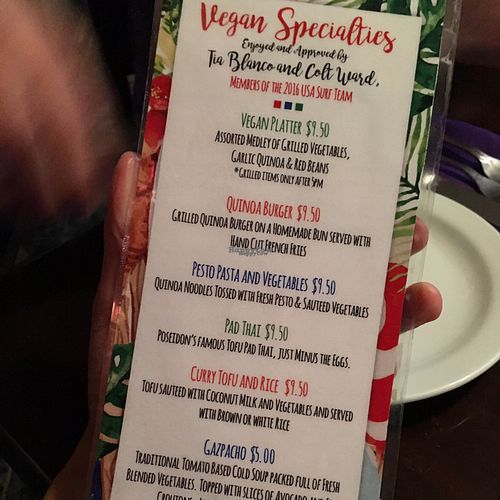 Vegan Specialties
Enjoyed and Approved by
Tia Blanco and Colt Ward,
Members of the 2016 USA Surf Team
Vegan Platter $9.50
Assorted Medley of Grilled Vegetables,
Garlic Quinoa & Red Beans
*Grilled items only after 5pm
Quinoa Burger $9.50
Grilled Quinoa Burger on a Homemade Bun served with
Hand Cut French Fries
Pesto Pasta and Vegetables $9.50
Quinoa Noodles Tossed with Fresh Pesto & Sauteed Vegetables
Pad Thai $9.50
Poseidon's famous Tofu Pad Thai, just Minus the Eggs.
Curry Tofu and Rice $9.50
Tofu sauteed with Coconut Milk and Vegetables and served
with Brown or white Rice
Gazpacho $5.00
Traditional Tomato Based Cold Soup packed full of Fresh
Blended Vegetables. Topped with slices of Avocado and